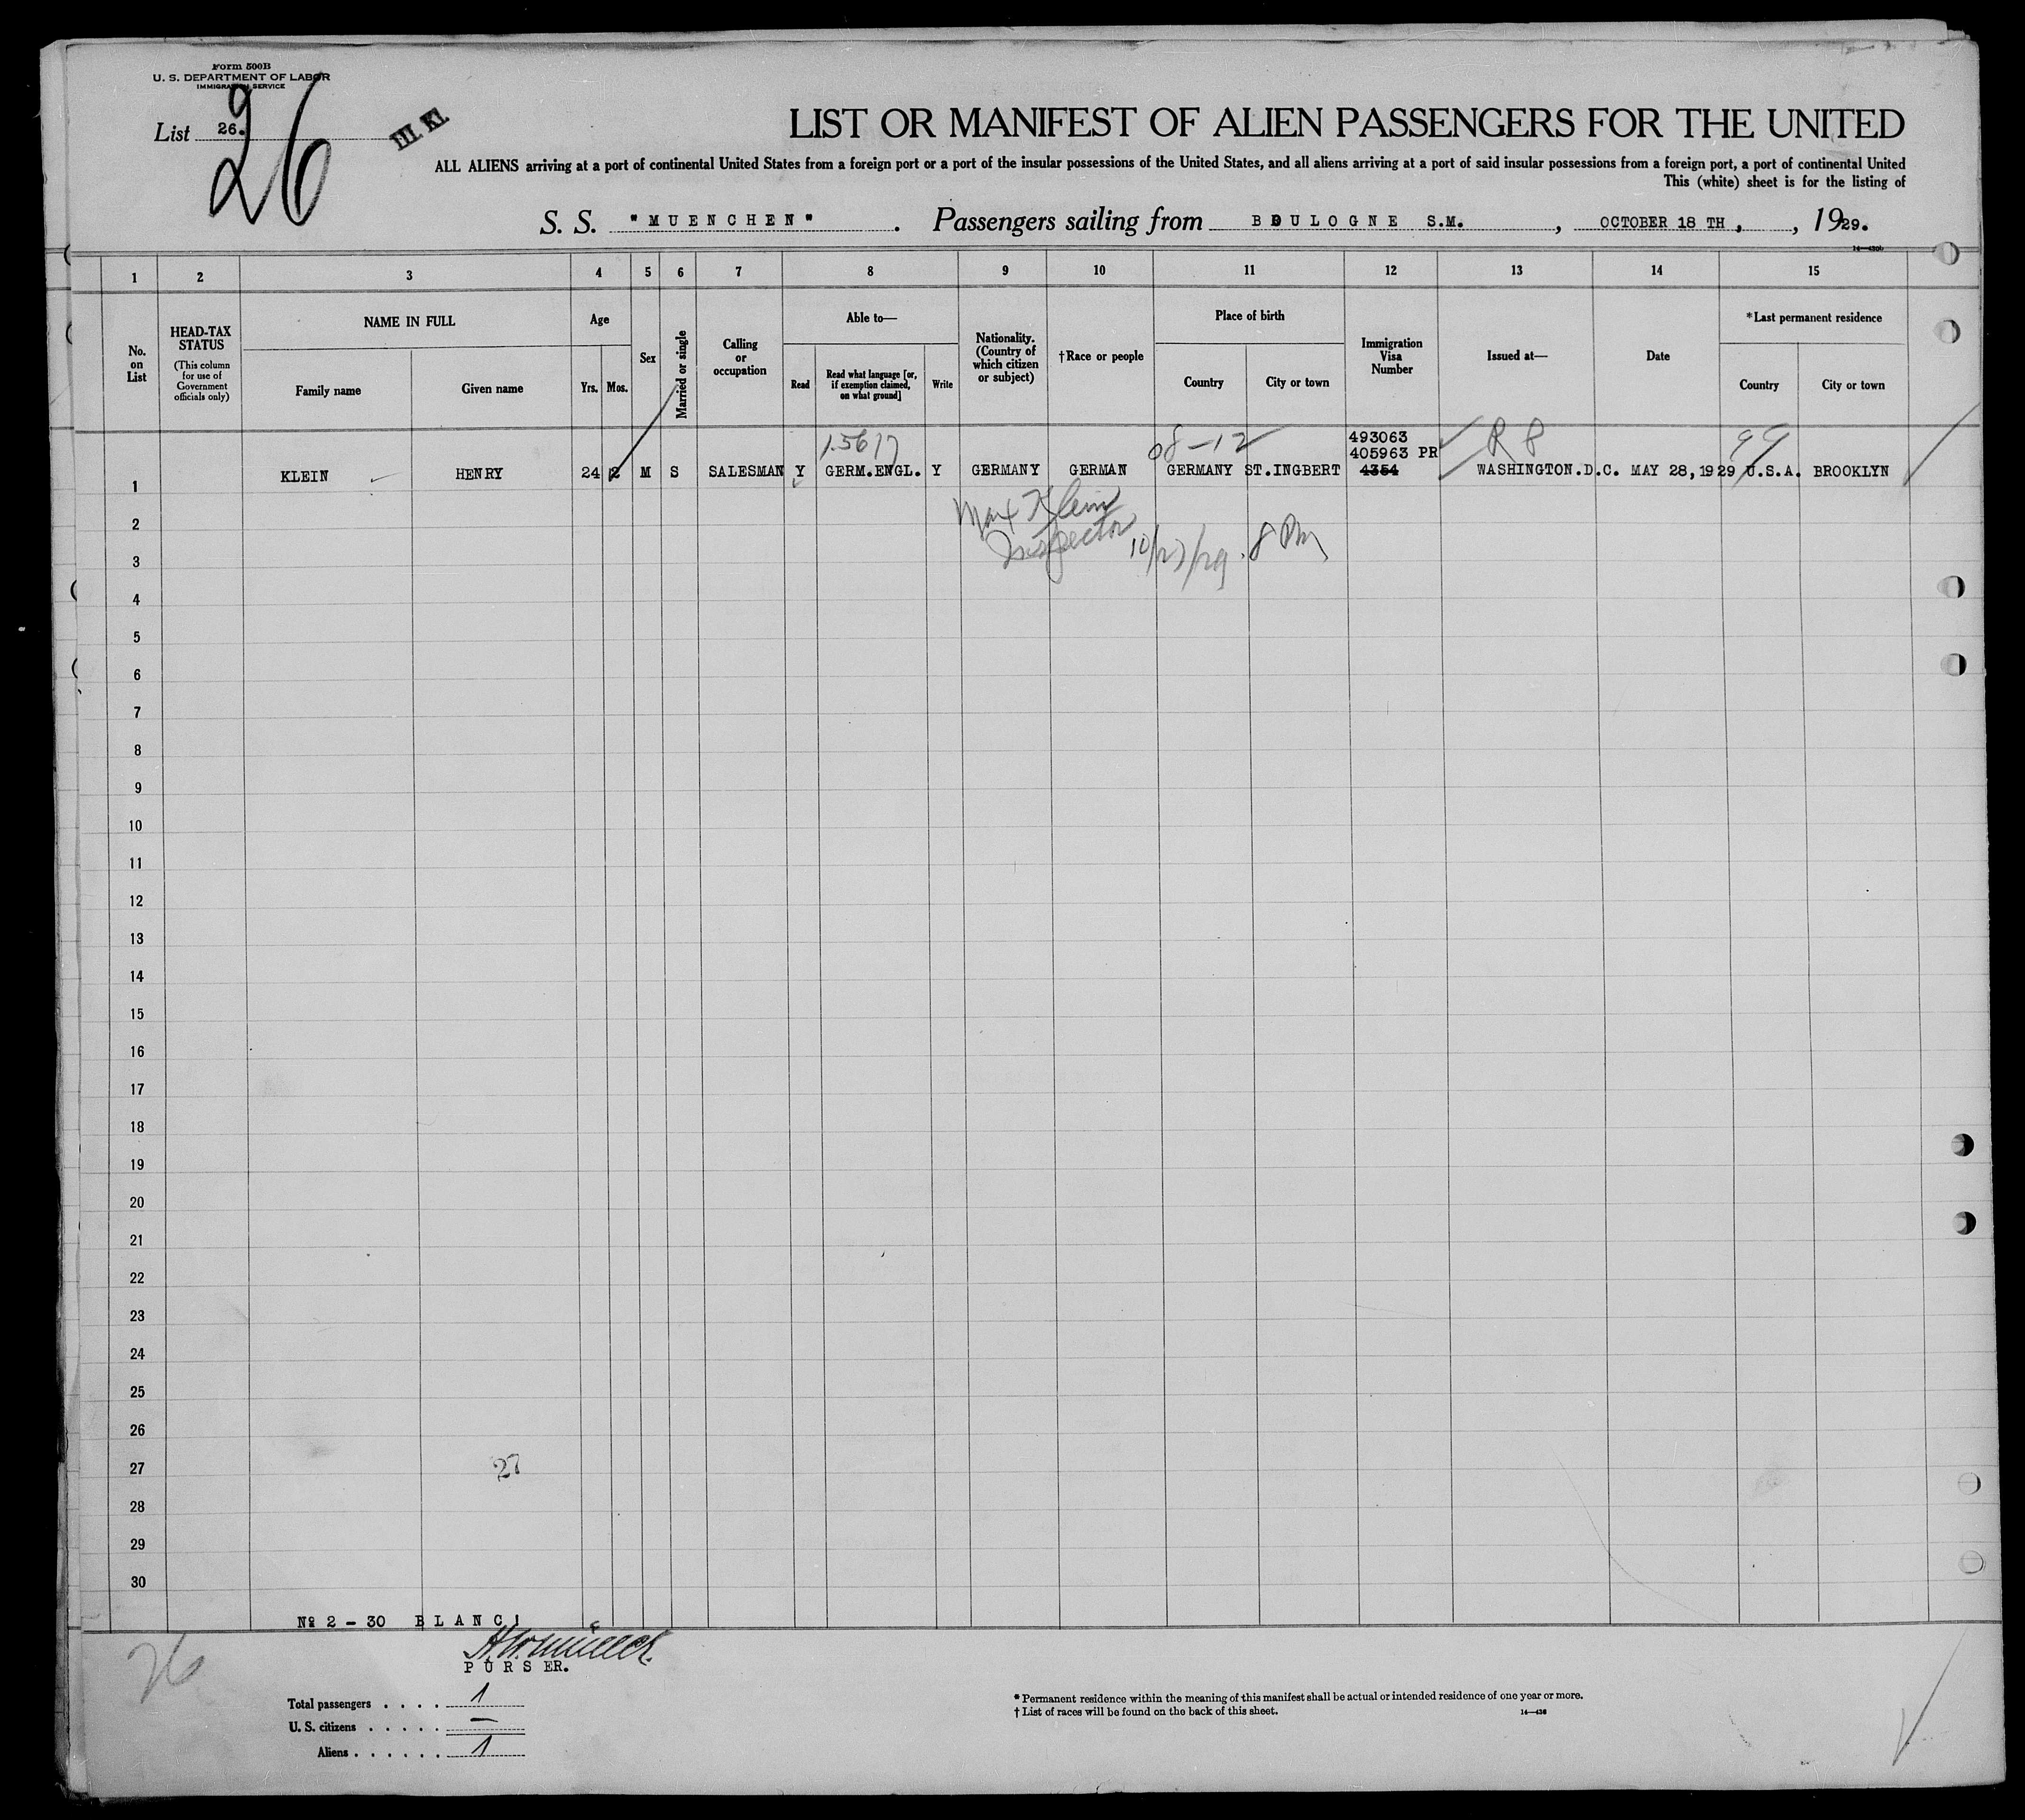 Form 500B
U. S. DEPARTMENT OF LABOR
IMMIGRATION SERVICE
List 26.
26
III. Kl.
LIST OR MANIFEST OF ALIEN PASSENGERS FOR THE UNITED
ALL ALIENS arriving at a port of continental United States from a foreign port or a port of the insular possessions of the United States, and all aliens arriving at a port of said insular possessions from a foreign port, a port of continental United
This (white) sheet is for the listing of
S. S. "MUENCHEN". Passengers sailing from BOULOGNE S.M., OCTOBER 18 TH, , 1929.
1 2 3 4 5 6 7 8 9 10 11 12 13 14 15
No. on List
HEAD-TAX STATUS (This column for use of Government officials only)
NAME IN FULL
Family name
Given name
Age
Yrs.
Mos.
Sex
Married or single
Calling or occupation
Able to—
Read
Read what language [or, if exemption claimed, on what ground]
Write
Nationality. (Country of which citizen or subject)
†Race or people
Place of birth
Country
City or town
Immigration Visa Number
Issued at—
Date
*Last permanent residence
Country
City or town
08-12
493063
405963 PR
R 8
99
1 KLEIN HENRY 24 2 M S SALESMAN Y GERM.ENGL. Y GERMANY GERMAN GERMANY ST.INGBERT 4354 WASHINGTON.D.C. MAY 28,1929 U.S.A. BROOKLYN
Max Klein
Inspector 10/27/29. 8 PM
2
3
4
5
6
7
8
9
10
11
12
13
14
15
16
17
18
19
20
21
22
23
24
25
26
27
27
28
29
30
№ 2 - 30 BLANC!
PURSER.
26
Total passengers . . . . 1
U. S. citizens . . . . . —
Aliens . . . . . . 1
* Permanent residence within the meaning of this manifest shall be actual or intended residence of one year or more.
† List of races will be found on the back of this sheet.